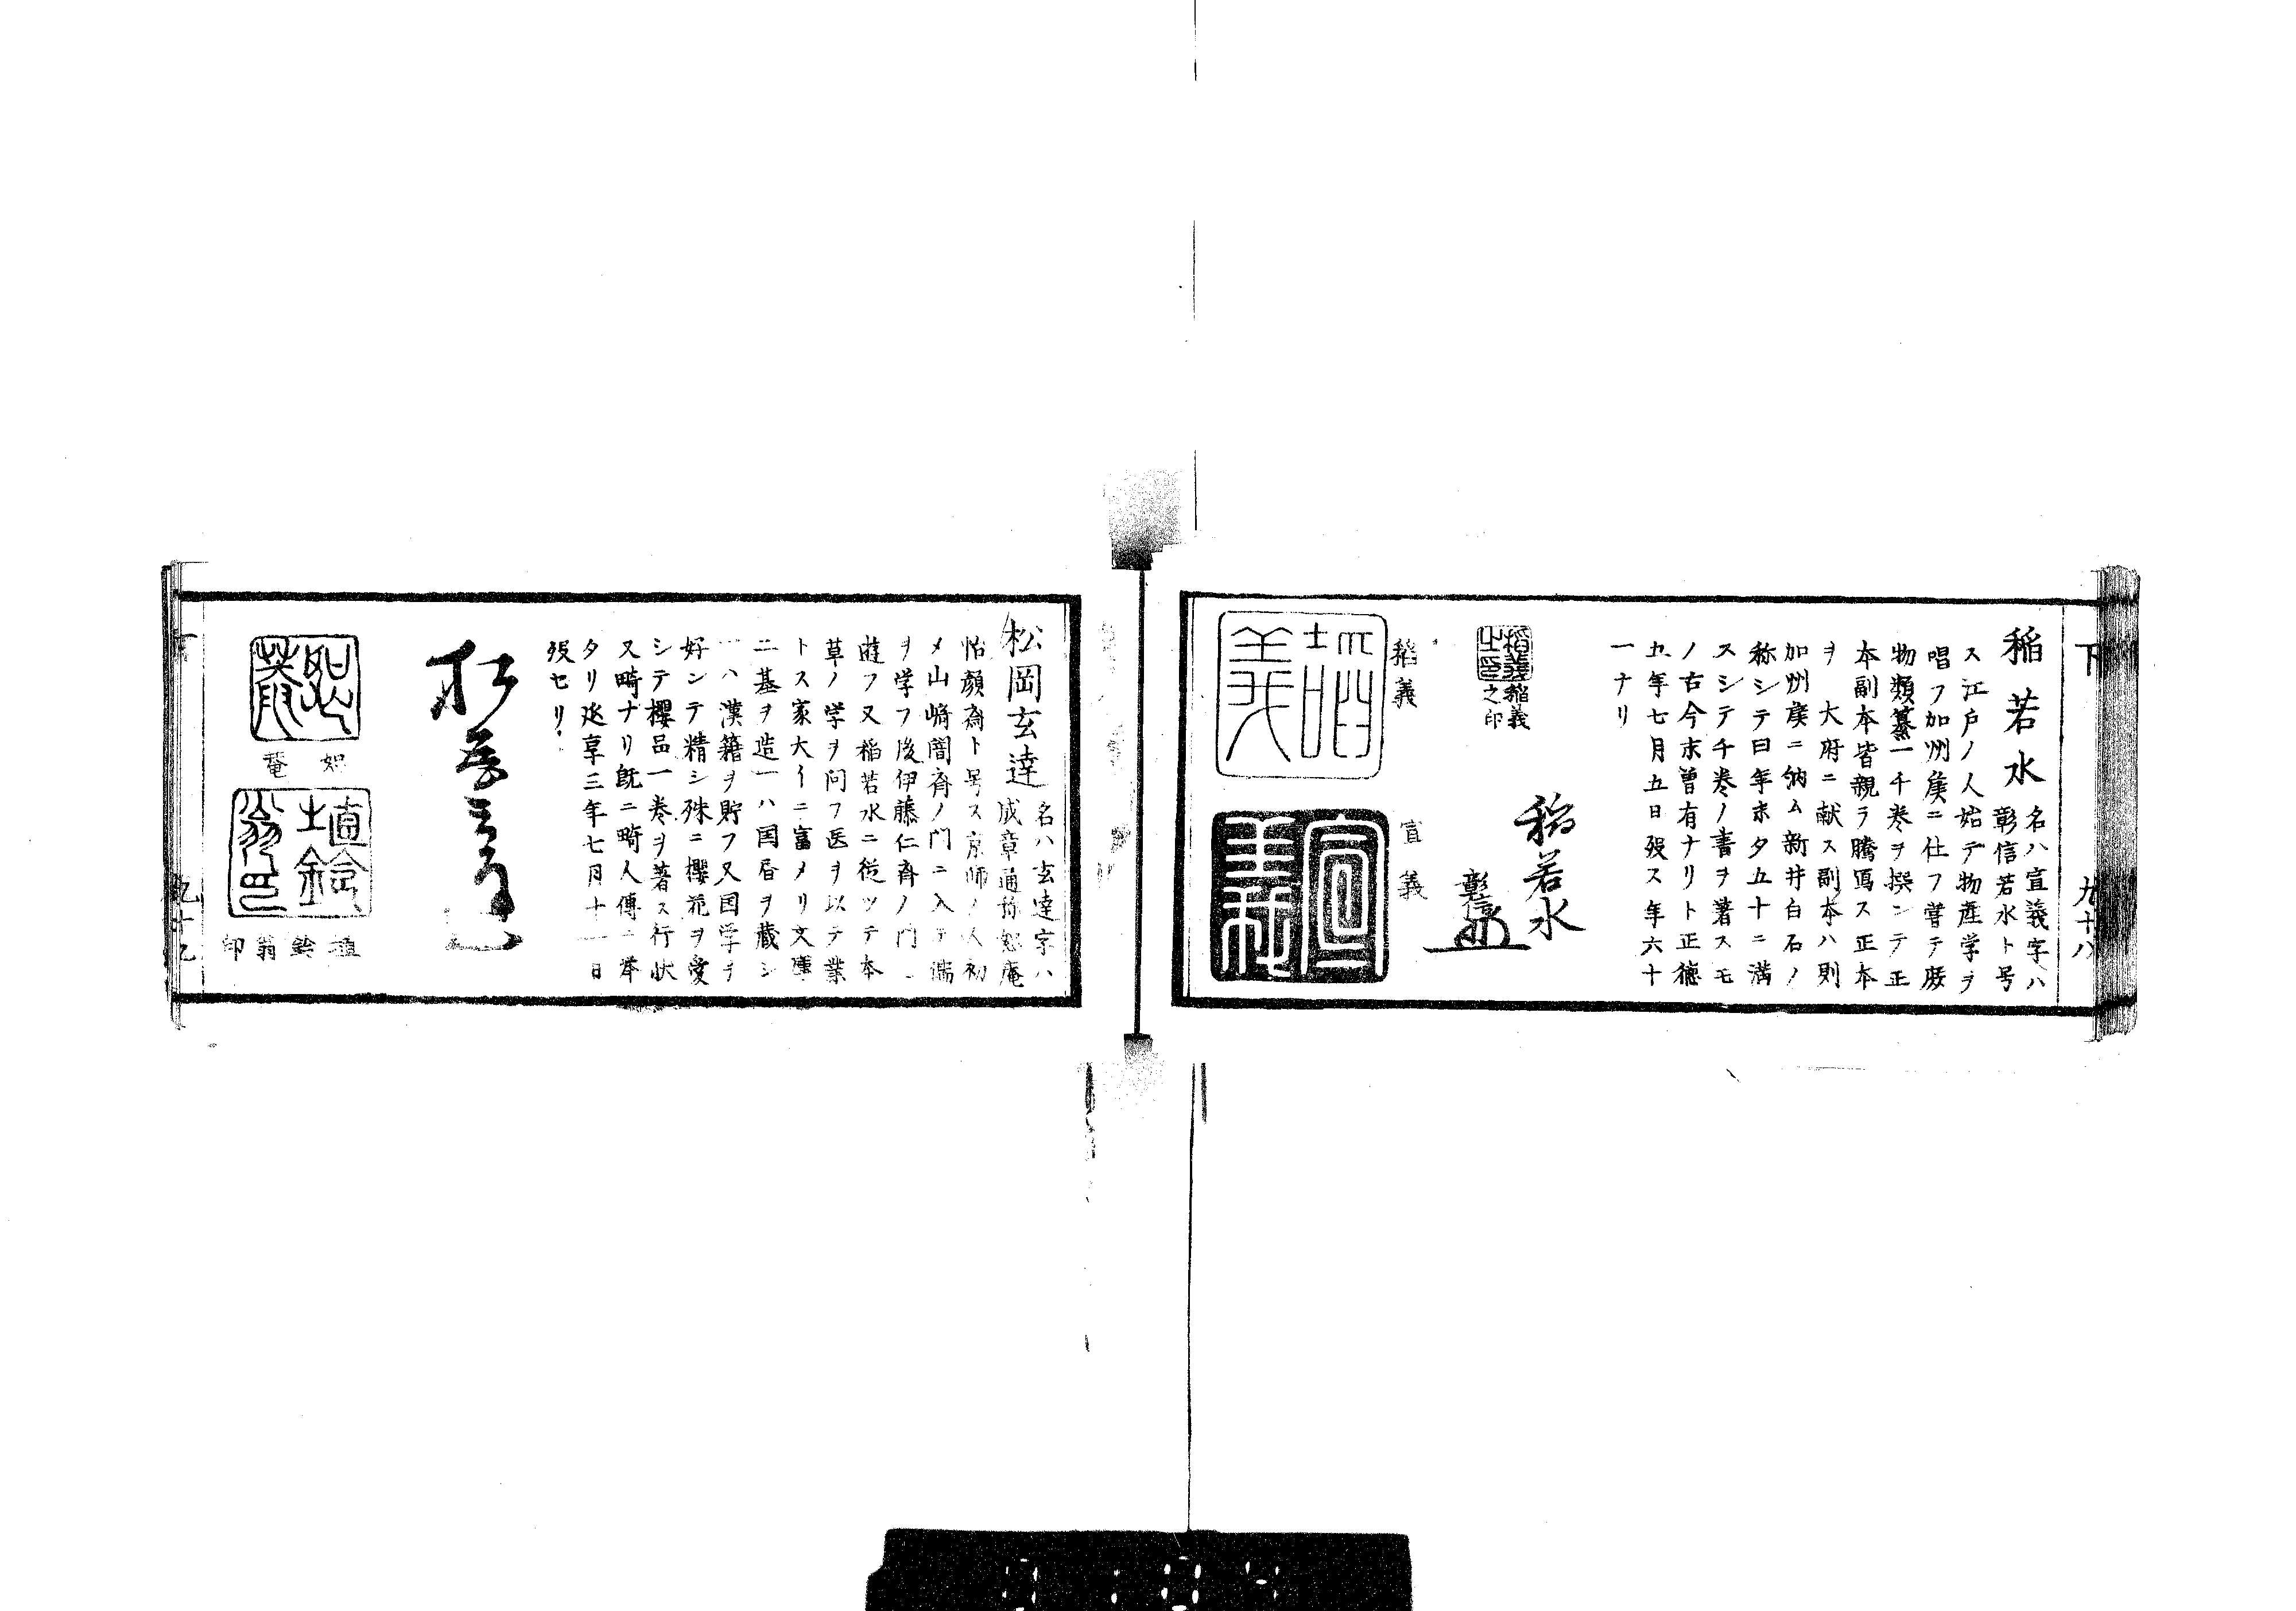 下 九十八
稲若水
名ハ宣義字ハ
彰信若水ト号
ス江戸ノ人始テ物産学ヲ
唱フ加州矦ニ仕フ嘗テ廢
物類纂一千巻ヲ撰ンテ正
本副本皆親ラ騰写ス正本
ヲ 大府ニ献ス副本ハ則
加州矦ニ納ム新井白石ノ
称シテ曰年末タ五十ニ満
スシテ千巻ノ書ヲ著スモ
ノ古今未曽有ナリト正徳
五年七月五日歿ス年六十
一ナリ
稲若水
彰信
稲義
之印
稲義
宣義
松岡玄達
名ハ玄達字ハ
成章通称恕庵
怡顔斎ト号ス京師ノ人初
メ山崎闇斉ノ門ニ入テ儒
ヲ学フ後伊藤仁斉ノ門ニ
遊フ又稲若水ニ従ッテ本
草ノ学ヲ问フ医ヲ以テ業
トス家大イニ富メリ文庫
二基ヲ造一ハ国昏ヲ蔵シ
一ハ漢籍ヲ貯フ又国学ヲ
好ンテ精シ殊ニ櫻花ヲ愛
シテ櫻品一巻ヲ著ス行状
又畸ナリ既ニ畸人傳ニ挙
タリ延享三年七月十一日
歿セリ
恕菴
埴鈴翁印
九十九